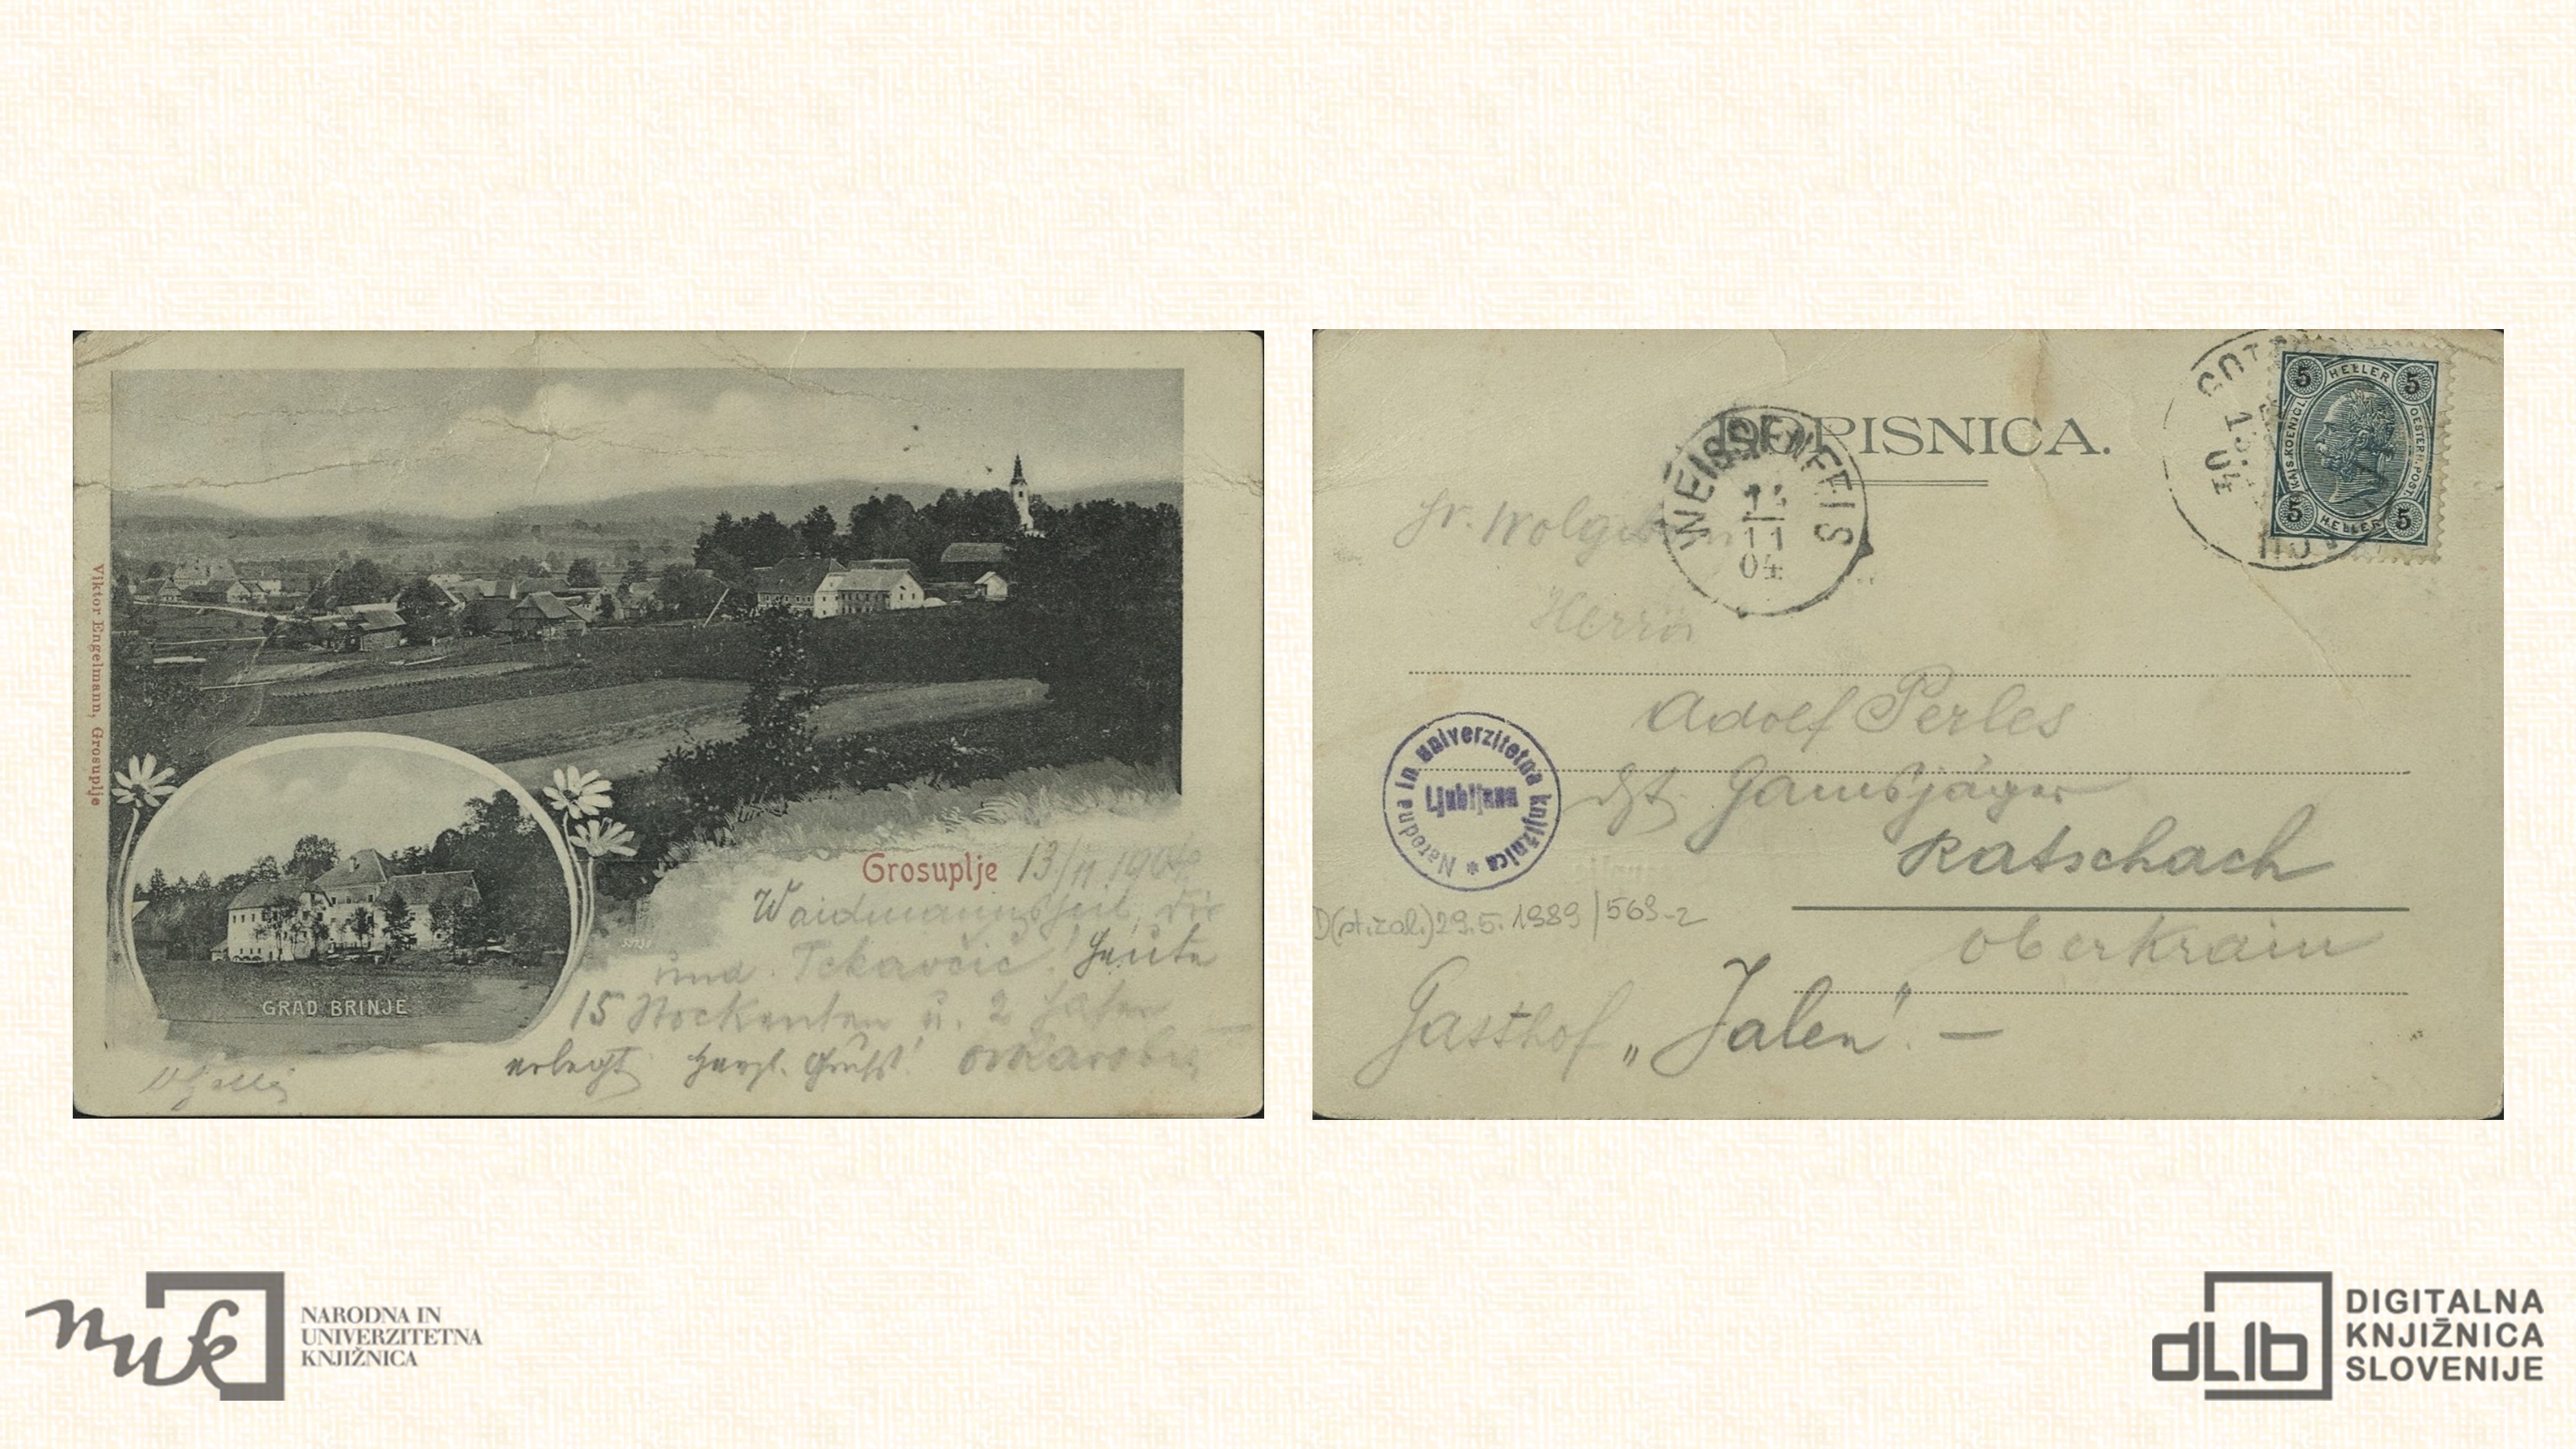 Viktor Engelmann, Grosuplje
Grosuplje 13/11 1904
Waidmannsheil, Dir
und Tekavčič! Heute
15 Stockenten u. 2 Hasen
erlegt. Herzl. Gruß!
GRAD BRINJE
DOPISNICA.
WEISSENFELS
11
04
GOT
04
5 HELLER 5
KAIS. KOENIGL. OESTERR. POST.
5 HELLER 5
Herrn
Adolf Perles
dzt. Gamsjäger
Ratschach
Oberkrain
Gasthof „Jalen". —
Narodna in univerzitetna knjižnica *
Ljubljana
D(st.zal.)29.5.1989/569-2
nuk
NARODNA IN
UNIVERZITETNA
KNJIŽNICA
dLib
DIGITALNA
KNJIŽNICA
SLOVENIJE